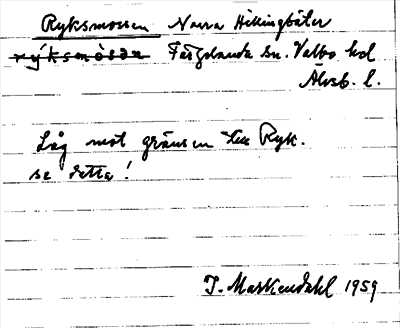 Ryksmossen Norra Hillingsäter
rýksmòsən Färgelanda sn. Valbo hd
Älvsb. l.
Låg mot gränsen till Ryk.
se detta!
I. Markendahl 1959